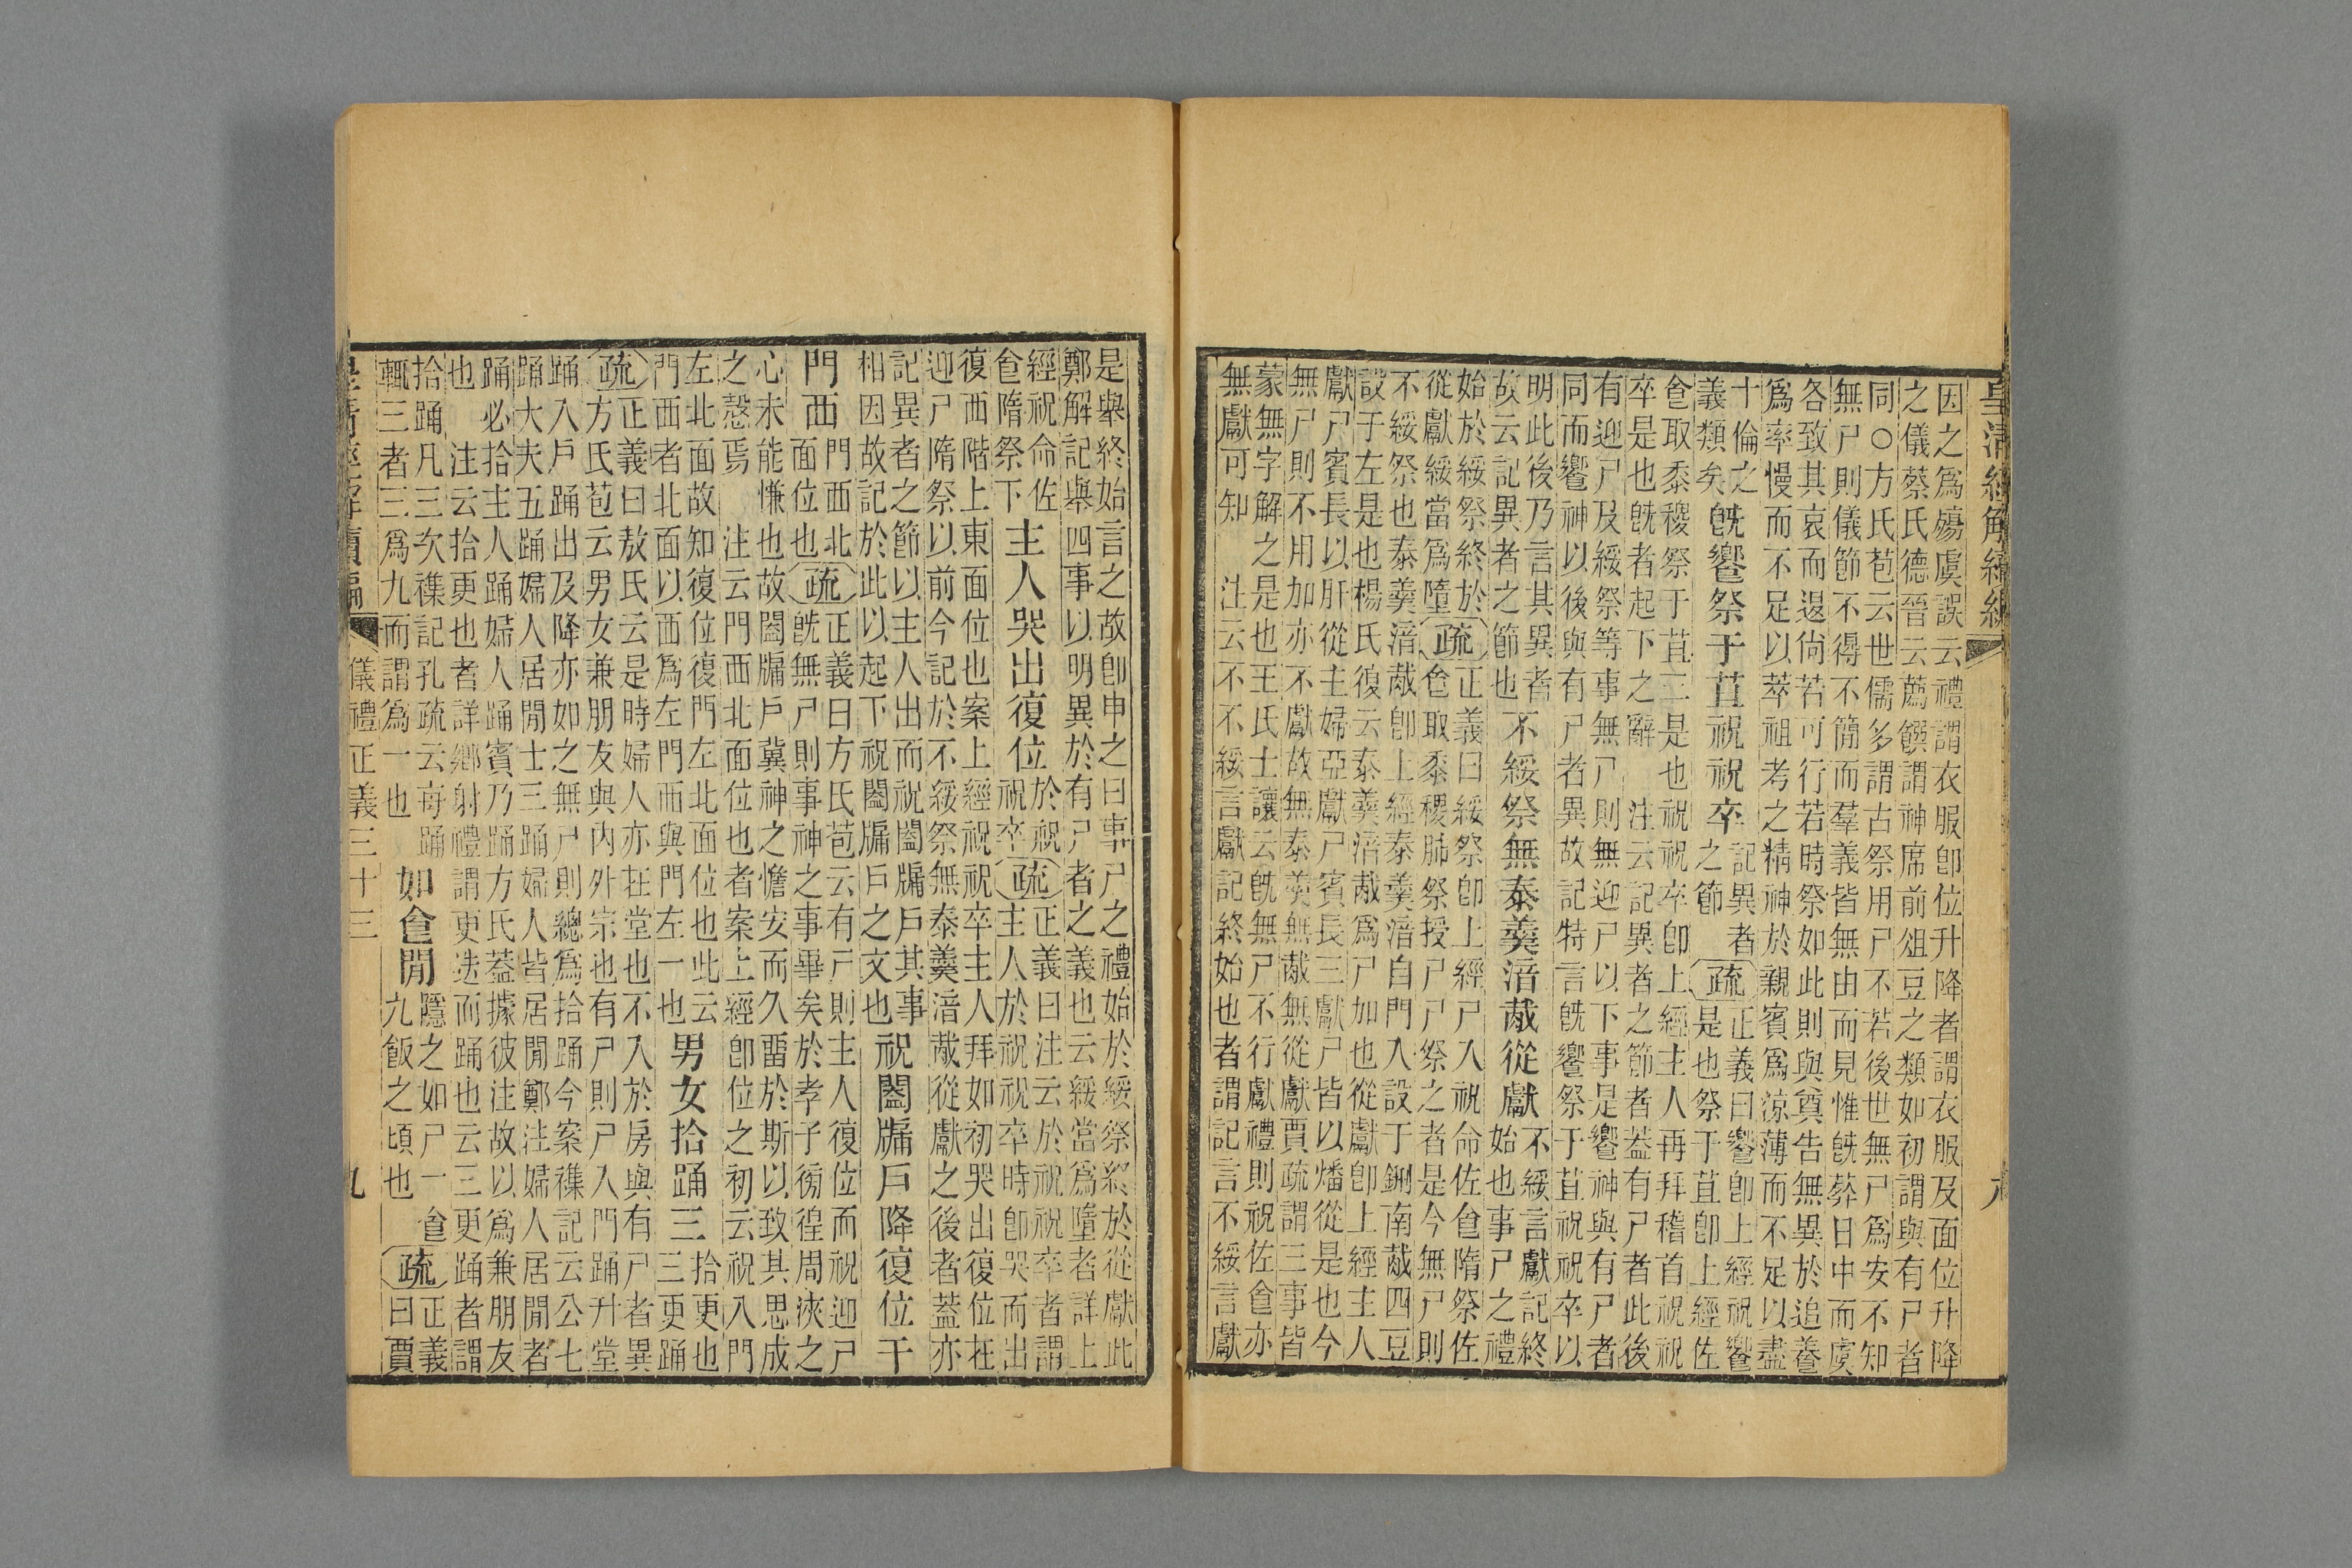 皇清經解續編
因之爲殤虞誤云禮謂衣服卽位升降者謂衣服及面位升降
之儀蔡氏德晉云薦饌謂神席前俎豆之類如初謂與有尸者
同○方氏苞云世儒多謂古祭用尸不若後世無尸爲安不知
無尸則儀節不得不簡而羣義皆無由而見惟旣葬日中而虞
各致其哀而退尙若可行若時祭如此則與奠告無異於追養
爲率慢而不足以萃祖考之精神於親賓爲涼薄而不足以盡
十倫之
義類矣
旣饗祭于苴祝祝卒
記異者
之節
疏
正義曰饗卽上經祝饗
是也祭于苴卽上經佐
食取黍稷祭于苴三是也祝祝卒卽上經主人再拜稽首祝祝
卒是也旣者起下之辭 注云記異者之節者蓋有尸者此後
有迎尸及綏祭等事無尸則無迎尸以下事是饗神與有尸者
同而饗神以後與有尸者異故記特言旣饗祭于苴祝祝卒以
明此後乃言其異者
故云記異者之節也
不綏祭無泰羹湆胾從獻
不綏言獻記終
始也事尸之禮
始於綏祭終於
從獻綏當爲墮
疏
正義曰綏祭卽上經尸入祝命佐食隋祭佐
食取黍稷肺祭授尸尸祭之者是今無尸則
不綏祭也泰羹湆胾卽上經泰羹湆自門入設于鉶南胾四豆
設于左是也楊氏復云泰羹湆胾爲尸加也從獻卽上經主人
獻尸賓長以肝從主婦亞獻尸賓長三獻尸皆以燔從是也今
無尸則不用加亦不獻故無泰羹無胾無從獻賈疏謂三事皆
蒙無字解之是也王氏士讓云旣無尸不行獻禮則祝佐食亦
無獻可知 注云不不綏言獻記終始也者謂記言不綏言獻
是舉終始言之故卽申之曰事尸之禮始於綏祭終於從獻此
鄭解記舉四事以明異於有尸者之義也云綏當爲墮者詳上
經祝命佐
食隋祭下
主人哭出復位
於祝
祝卒
疏
正義曰注云於祝祝卒者謂
主人於祝祝卒時卽哭而出
復西階上東面位也案上經祝祝卒主人拜如初哭出復位在
迎尸隋祭以前今記於不綏祭無泰羹湆胾從獻之後者蓋亦
記異者之節以主人出而祝闔牖戶其事
相因故記於此以起下祝闔牖戶之文也
祝闔牖戶降復位于
門西
門西北
面位也
疏
正義曰方氏苞云有尸則主人復位而祝迎尸
旣無尸則事神之事畢矣於孝子徬徨周浹之
心未能慊也故闔牖戶冀神之憺安而久留於斯以致其思成
之愨焉 注云門西北面位也者案上經卽位之初云祝入門
左北面故知復位復門左北面位也此云
門西者北面以西爲左門西與門左一也
男女拾踊三
拾更也
三更踊
疏
正義曰敖氏云是時婦人亦在堂也不入於房與有尸者異
方氏苞云男女兼朋友與內外宗也有尸則尸入門踊升堂
踊入戶踊出及降亦如之無尸則總爲拾踊今案襍記云公七
踊大夫五踊婦人居閒士三踊婦人皆居閒鄭注婦人居閒者
踊必拾主人踊婦人踊賓乃踊方氏蓋據彼注故以爲兼朋友
也 注云拾更也者詳鄉射禮謂更迭而踊也云三更踊者謂
拾踊凡三次襍記孔疏云每踊
輒三者三爲九而謂爲一也
如食閒
隱之如尸一食
九飯之頃也
疏
正義
曰賈
皇清經解續編 儀禮正義三十三 九